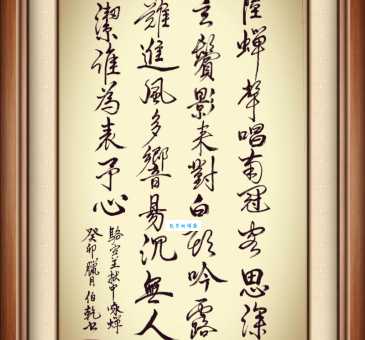 陸蟬聲唱南冠客思深
玄鬢影來對白頭吟露
難進風多響易沉無人
潔誰為表予心
駱賓王獄中咏蟬
癸卯臘月伯乾書